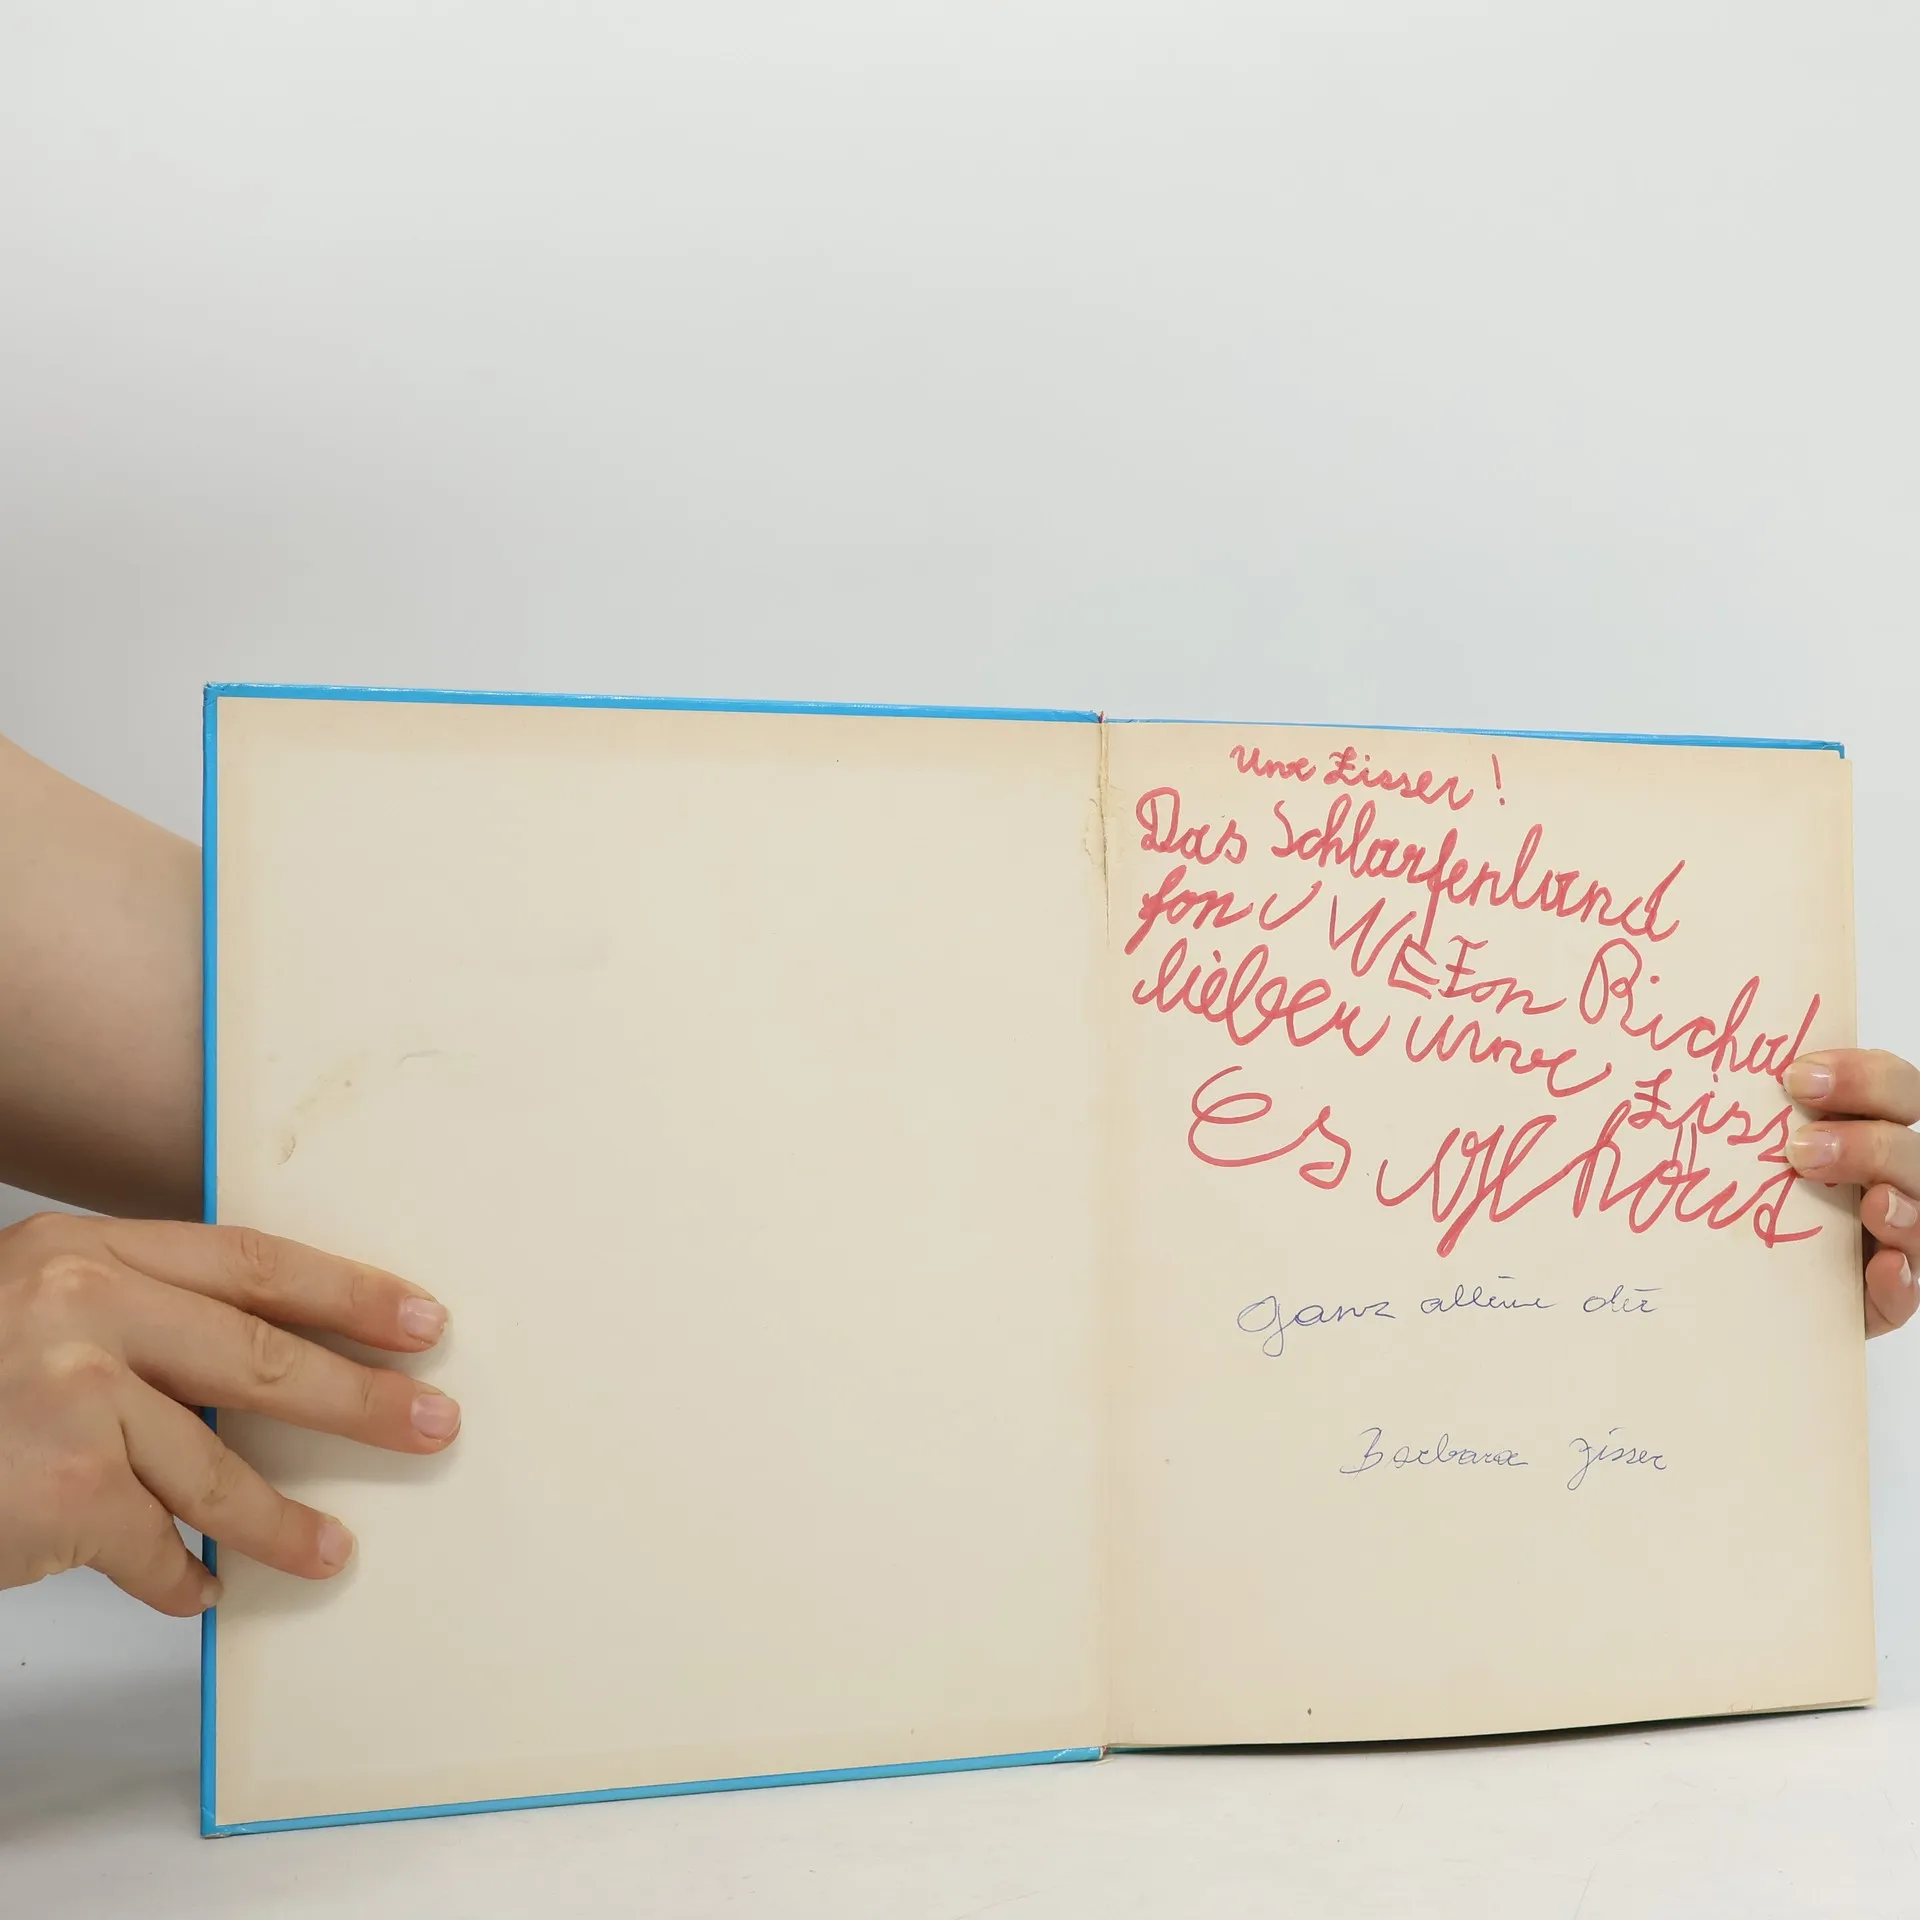 Uwe Zisser!
Das Schlarfenland
fon UWE Fon Richad
lieber Uwe Ziss
Es
Ganz alleine die
Barbara Zisser